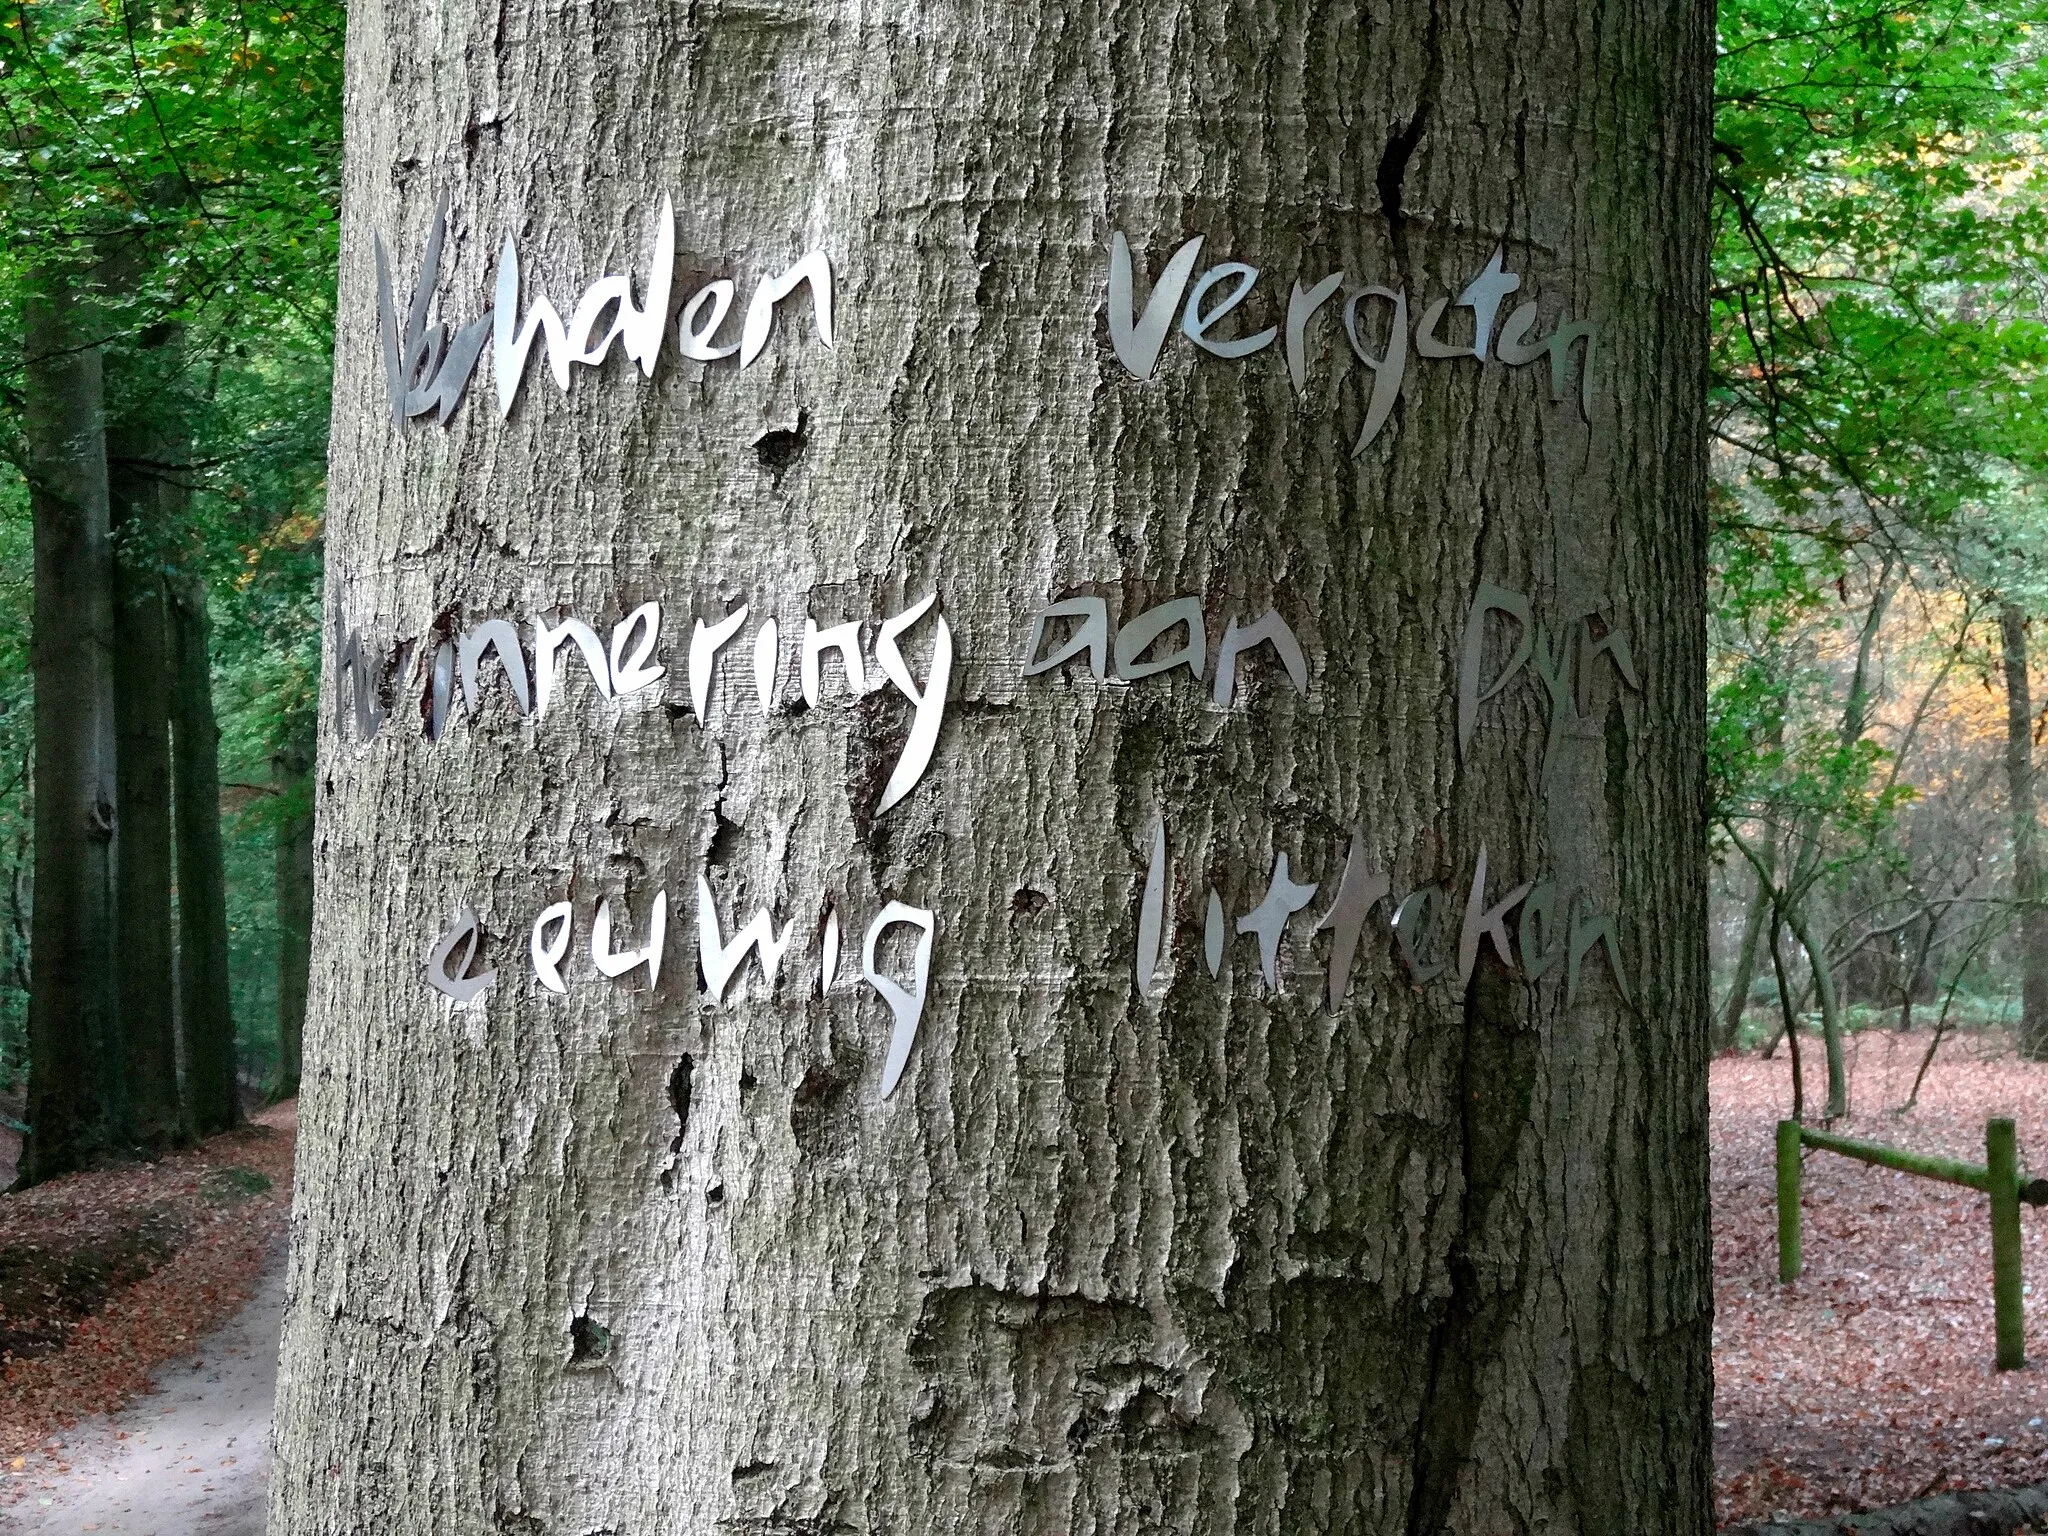 Verhalen vergeten
herinnering aan pyn
eeuwig litteken